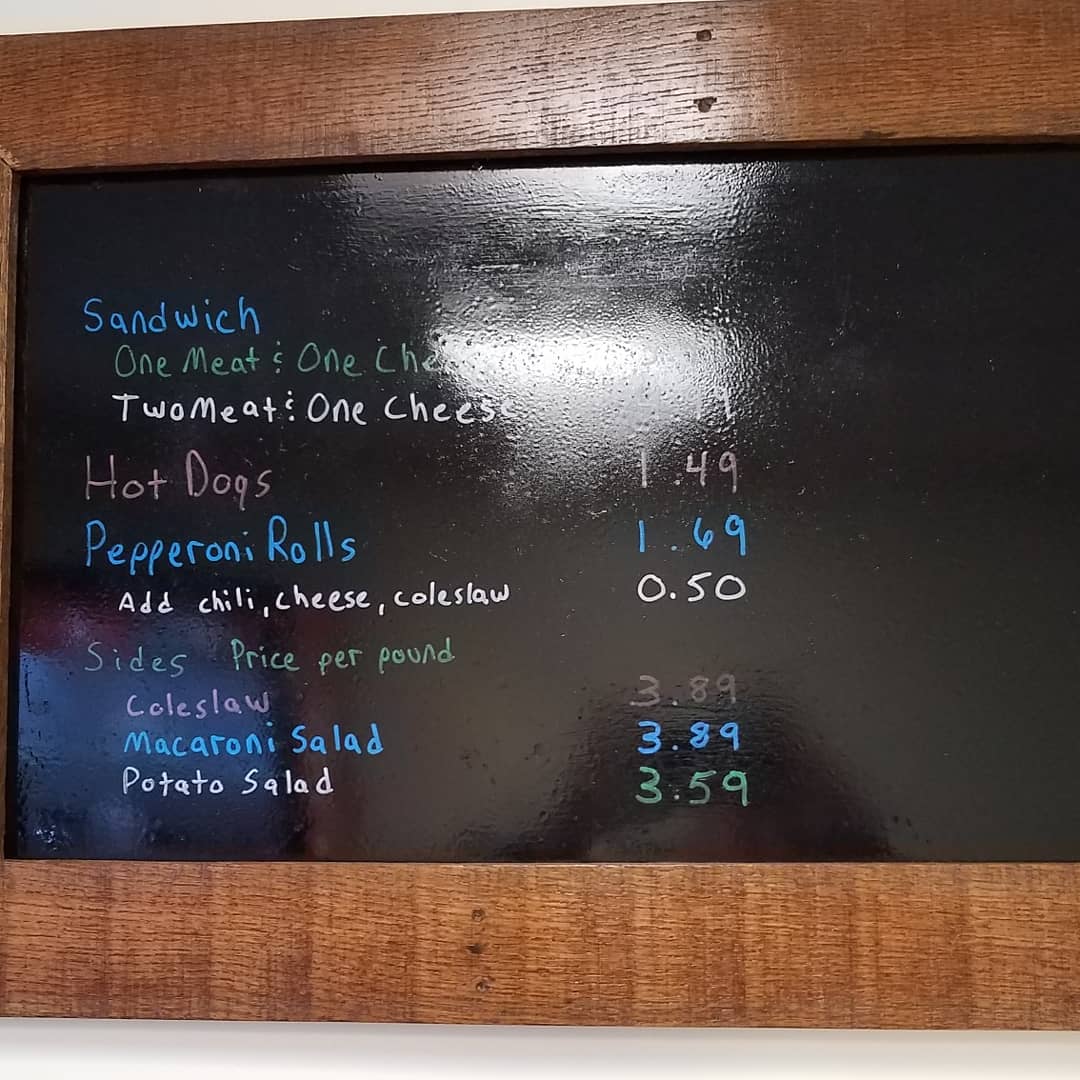 Sandwich
One Meat & One
Two Meat & One Cheese
Hot Dogs 1.49
Pepperoni Rolls 1.69
Add chili, cheese, coleslaw 0.50
Sides Price per pound
Coleslaw 3.89
Macaroni Salad 3.89
Potato Salad 3.59